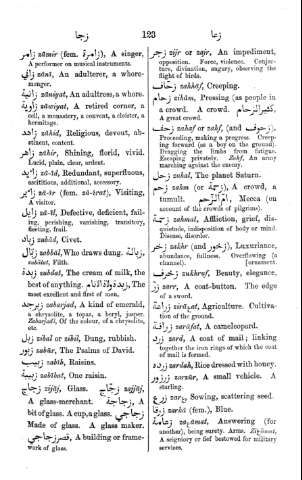 زجا
123
زعا
زامر zāmir (fem. زامرة), A singer,
A performer on musical instruments.
زاني zānī, An adulterer, a whore-
monger.
زانية zāniyat, An adultress, a whore.
زاوية zāwiyat, A retired corner, a
cell, a monastery, a convent, a cloister, a
hermitage.
زاهد zāhid, Religious, devout, ab-
stinent, content.
زاهر zāhir, Shining, florid, vivid.
Lucid, plain, clear, ardent.
زايد Redundant, superfluous,
additional, accessory.
زاير Visiting,
A visitor.
زايل Defective, deficient, fail-
ing, perishing, vanishing, transitory,
fleeting, frail.
زباد zabād, Civet.
زبال zabbāl, Who draws dung.
Filth.
زبدة zubdat, The cream of milk, the
best of anything. زبدة الانام The
most excellent and first of men,
زبرجد zabarjad, A kind of emerald,
a chrysolite, a topaz, a beryl, jasper.
Zabarjadī, Of the colour, of a chrysolite,
etc.
زبل zibal or zibil, Dung, rubbish.
زبور zabūr, The Psalms of David.
زبيب zabīb, Raisins.
زبيبة zabībat, One raisin.
زجاج zajāj, Glass. زجاج zajjāj,
A glass-merchant. زجاجة, A
bit of glass. A cup, a glass. زجاجي
Made of glass. A glass maker.
قصر زجاجي, A building or frame-
work of glass.
زجر zijr or zajr, An impediment,
opposition. Force, violence. Conjec-
ture, divination, augury, observing the
flight of birds.
زحاف zahhāf, Creeping.
زحام zihām, Pressing (as people in
a crowd. A crowd. كثير الزحام
A great crowd.
زحف zahaf or zahf, (and زحوف).
Proceeding, making a progress. Creep-
ing forward (as a boy on the ground).
Dragging the limbs from fatigue.
Escaping privately. Zahf, An army
marching against the enemy.
زحل zuhal, The planet Saturn.
زحم zahm or (زحمة), A crowd, a
tumult. ام الزحم Mecca (on
account of the crowds of pilgrims).
زحمة zahmat, Affliction, grief, dis-
quietude, indisposition of body or mind.
Disease, disorder.
زخر zakhr (and زخور), Luxuriance,
abundance, fullness. Overflowing (a
channel). [ornament.
زخرف zukhruf, Beauty, elegance,
زر zarr, A coat-button. The edge
of a sword.
زراعة zirā,at, Agriculture. Cultiva-
tion of the ground.
زرافة zarāfat, A cameleopard.
زرد zard, A coat of mail; linking
together the iron rings of which the coat
of mail is formed.
زرده zardah, Rice dressed with honey.
زرزور zarzūr, A small vehicle. A
starling.
زرع zar,a, Sowing, scattering seed.
زرقا zarkā (fem.), Blue.
زعامة za,āmat, Answering (for
another), being surety. Arms.
A seigniory or fief bestowed for military
services.